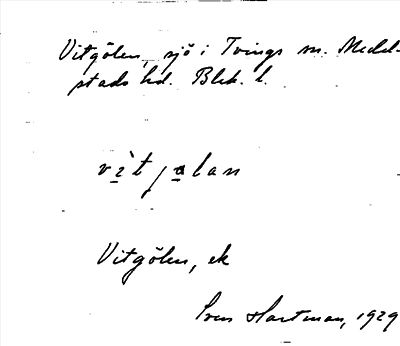 Vitgölen, sjö i Tvings sn. Medel-
stads hd. Blek. l.
vìtjalan
Vitgölen, ek
Sven Hartman, 1929